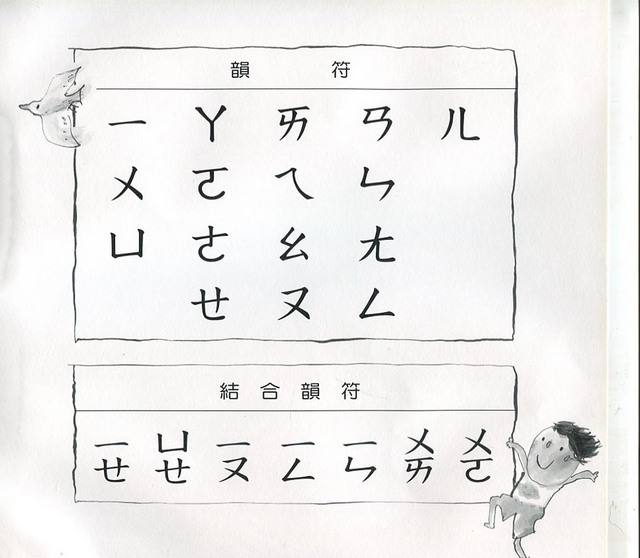 韻符
ㄧ ㄚ ㄞ ㄢ ㄦ
ㄨ ㄛ ㄟ ㄣ
ㄩ ㄜ ㄠ ㄤ
ㄝ ㄡ ㄥ
結合韻符
ㄧㄝ ㄩㄝ ㄧㄡ ㄧㄥ ㄧㄣ ㄨㄞ ㄨㄛ